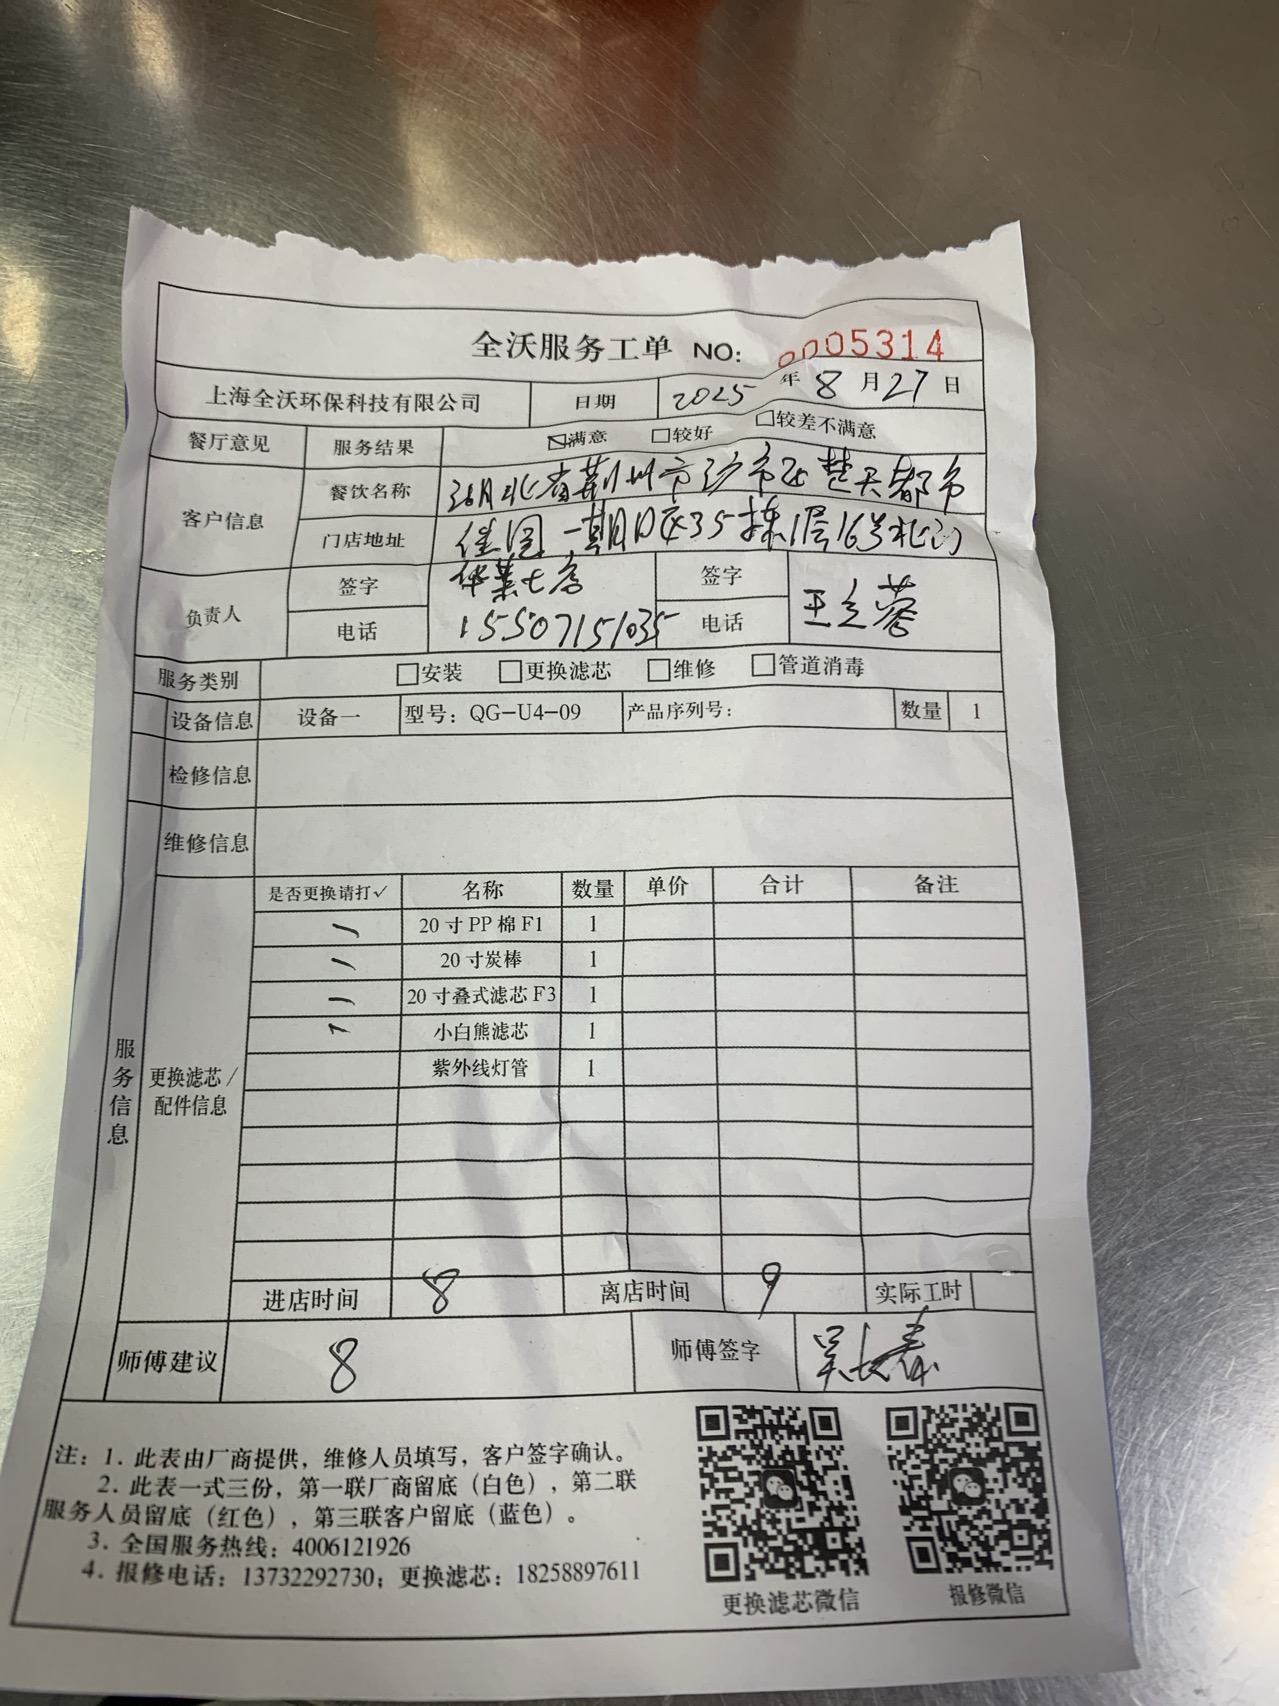 全沃服务工单 NO: 0005314
上海全沃环保科技有限公司 日期 2025年8月27日
餐厅意见 服务结果 ☑满意 □较好 □较差不满意
客户信息 餐饮名称 湖北省荆州市沙市区楚天都市
门店地址 佳园一期D区35栋1层16号北门
负责人 签字 华莱士店 签字 王立蓉
电话 15507151035 电话
服务类别 □安装 □更换滤芯 □维修 □管道消毒
设备信息 设备一 型号：QG-U4-09 产品序列号： 数量 1
检修信息
维修信息
服务信息
更换滤芯/配件信息
是否更换请打✓ 名称 数量 单价 合计 备注
20寸PP棉F1 1
20寸炭棒 1
20寸叠式滤芯F3 1
小白熊滤芯 1
紫外线灯管 1
进店时间 8 离店时间 9 实际工时
师傅建议 8 师傅签字 吴长春
注：1. 此表由厂商提供，维修人员填写，客户签字确认。
2. 此表一式三份，第一联厂商留底（白色），第二联
服务人员留底（红色），第三联客户留底（蓝色）。
3. 全国服务热线：4006121926
4. 报修电话：13732292730；更换滤芯：18258897611
更换滤芯微信 报修微信